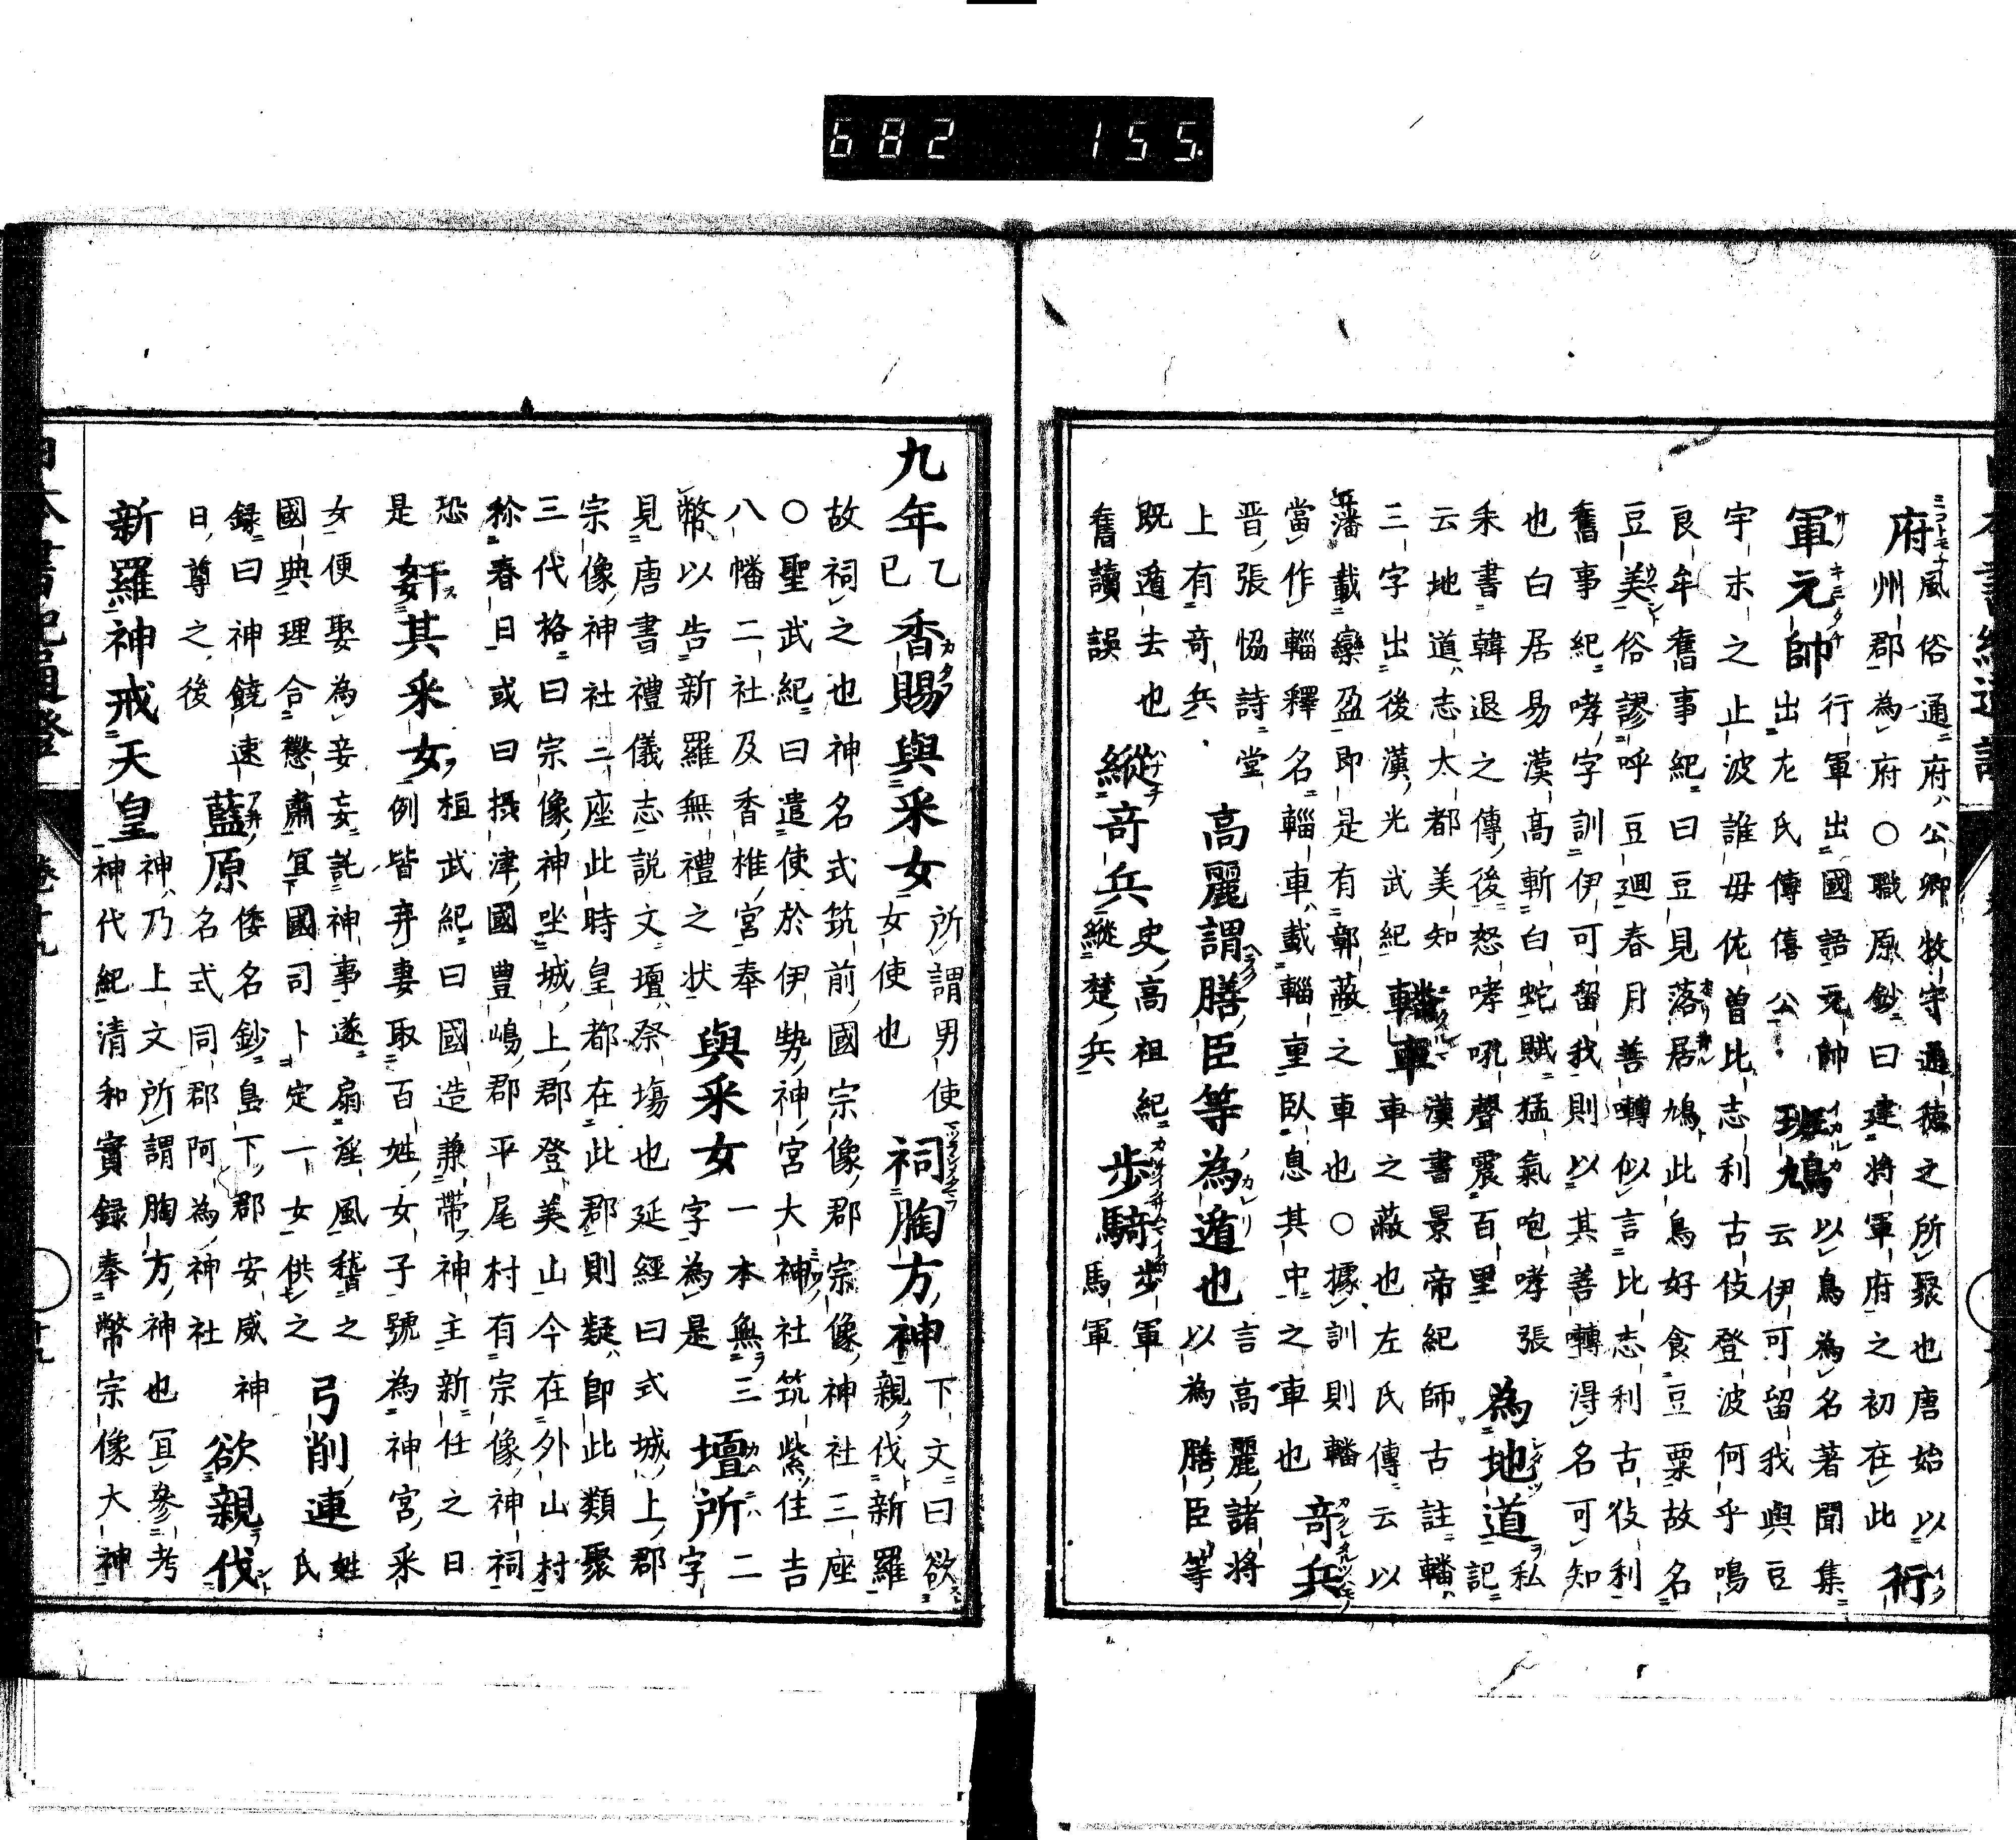 682 155.
府風俗通府公卿牧守通德之所聚也唐始以
州郡為府〇職原鈔曰建將軍府之初在此
行
軍元帥行軍出國語元帥
出左氏傳僖公
班鳩以鳥為名著聞集
云伊可留我與豆
宇末之止波誰毋佐曽比志利古伎登波何乎鳴
良牟舊事紀曰豆見落居鳩此鳥好食豆粟故名
豆美俗謬呼豆廻春月善囀似言比志利古伎利
舊事紀哮字訓伊可留我則以其善囀得名可知
也白居易漢高斬白蛇賦猛氣咆哮張
耒書韓退之傳後怒哮吼聲震百里
為地道私
記
云地道志太都美知
三字出後漢光武紀
轓車漢書景帝紀師古註轓
車之蔽也左氏傳云以
藩載欒盈即是有鄣蔽之車也〇據訓則轓
當作輜釋名輜車載輜重臥息其中之車也
奇兵
晋張恊詩堂
上有奇兵
高麗謂膳臣等為遁也言高麗諸将
以為膳臣等
既遁去也
舊讀誤
縱奇兵史高祖紀
縱楚兵
步騎步軍
馬軍
九年乙
巳
香賜與采女所謂男使
女使也
祠胸方神下文曰欲
親伐新羅
故祠之也神名式筑前國宗像郡宗像神社三座
〇聖武紀曰遣使於伊勢神宮大神社筑紫住吉
八幡二社及香椎宮奉
幣以告新羅無禮之状
與采女一本無三
字為是
壇所二
字
見唐書禮儀志説文壇祭塲也延經曰式城上郡
宗像神社二座此時皇都在此郡則疑即此類聚
三代格曰宗像神坐城上郡登美山今在外山村
称春日或曰摂津國豊嶋郡平尾村有宗像神祠
恐
是
奸其采女桓武紀曰國造兼帶神主新任之日
例皆弃妻取百姓女子號為神宮采
女便娶為妾妄託神事遂扇淫風稽之
國典理合懲肅宜國司卜定一女供之
弓削連姓
氏
録曰神饒速
日尊之後
藍原倭名鈔島下郡安威
名式同郡阿為神社
神
欲親伐
新羅神戒天皇神乃上文所謂胸方神也宜參考
神代紀清和實録奉幣宗像大神